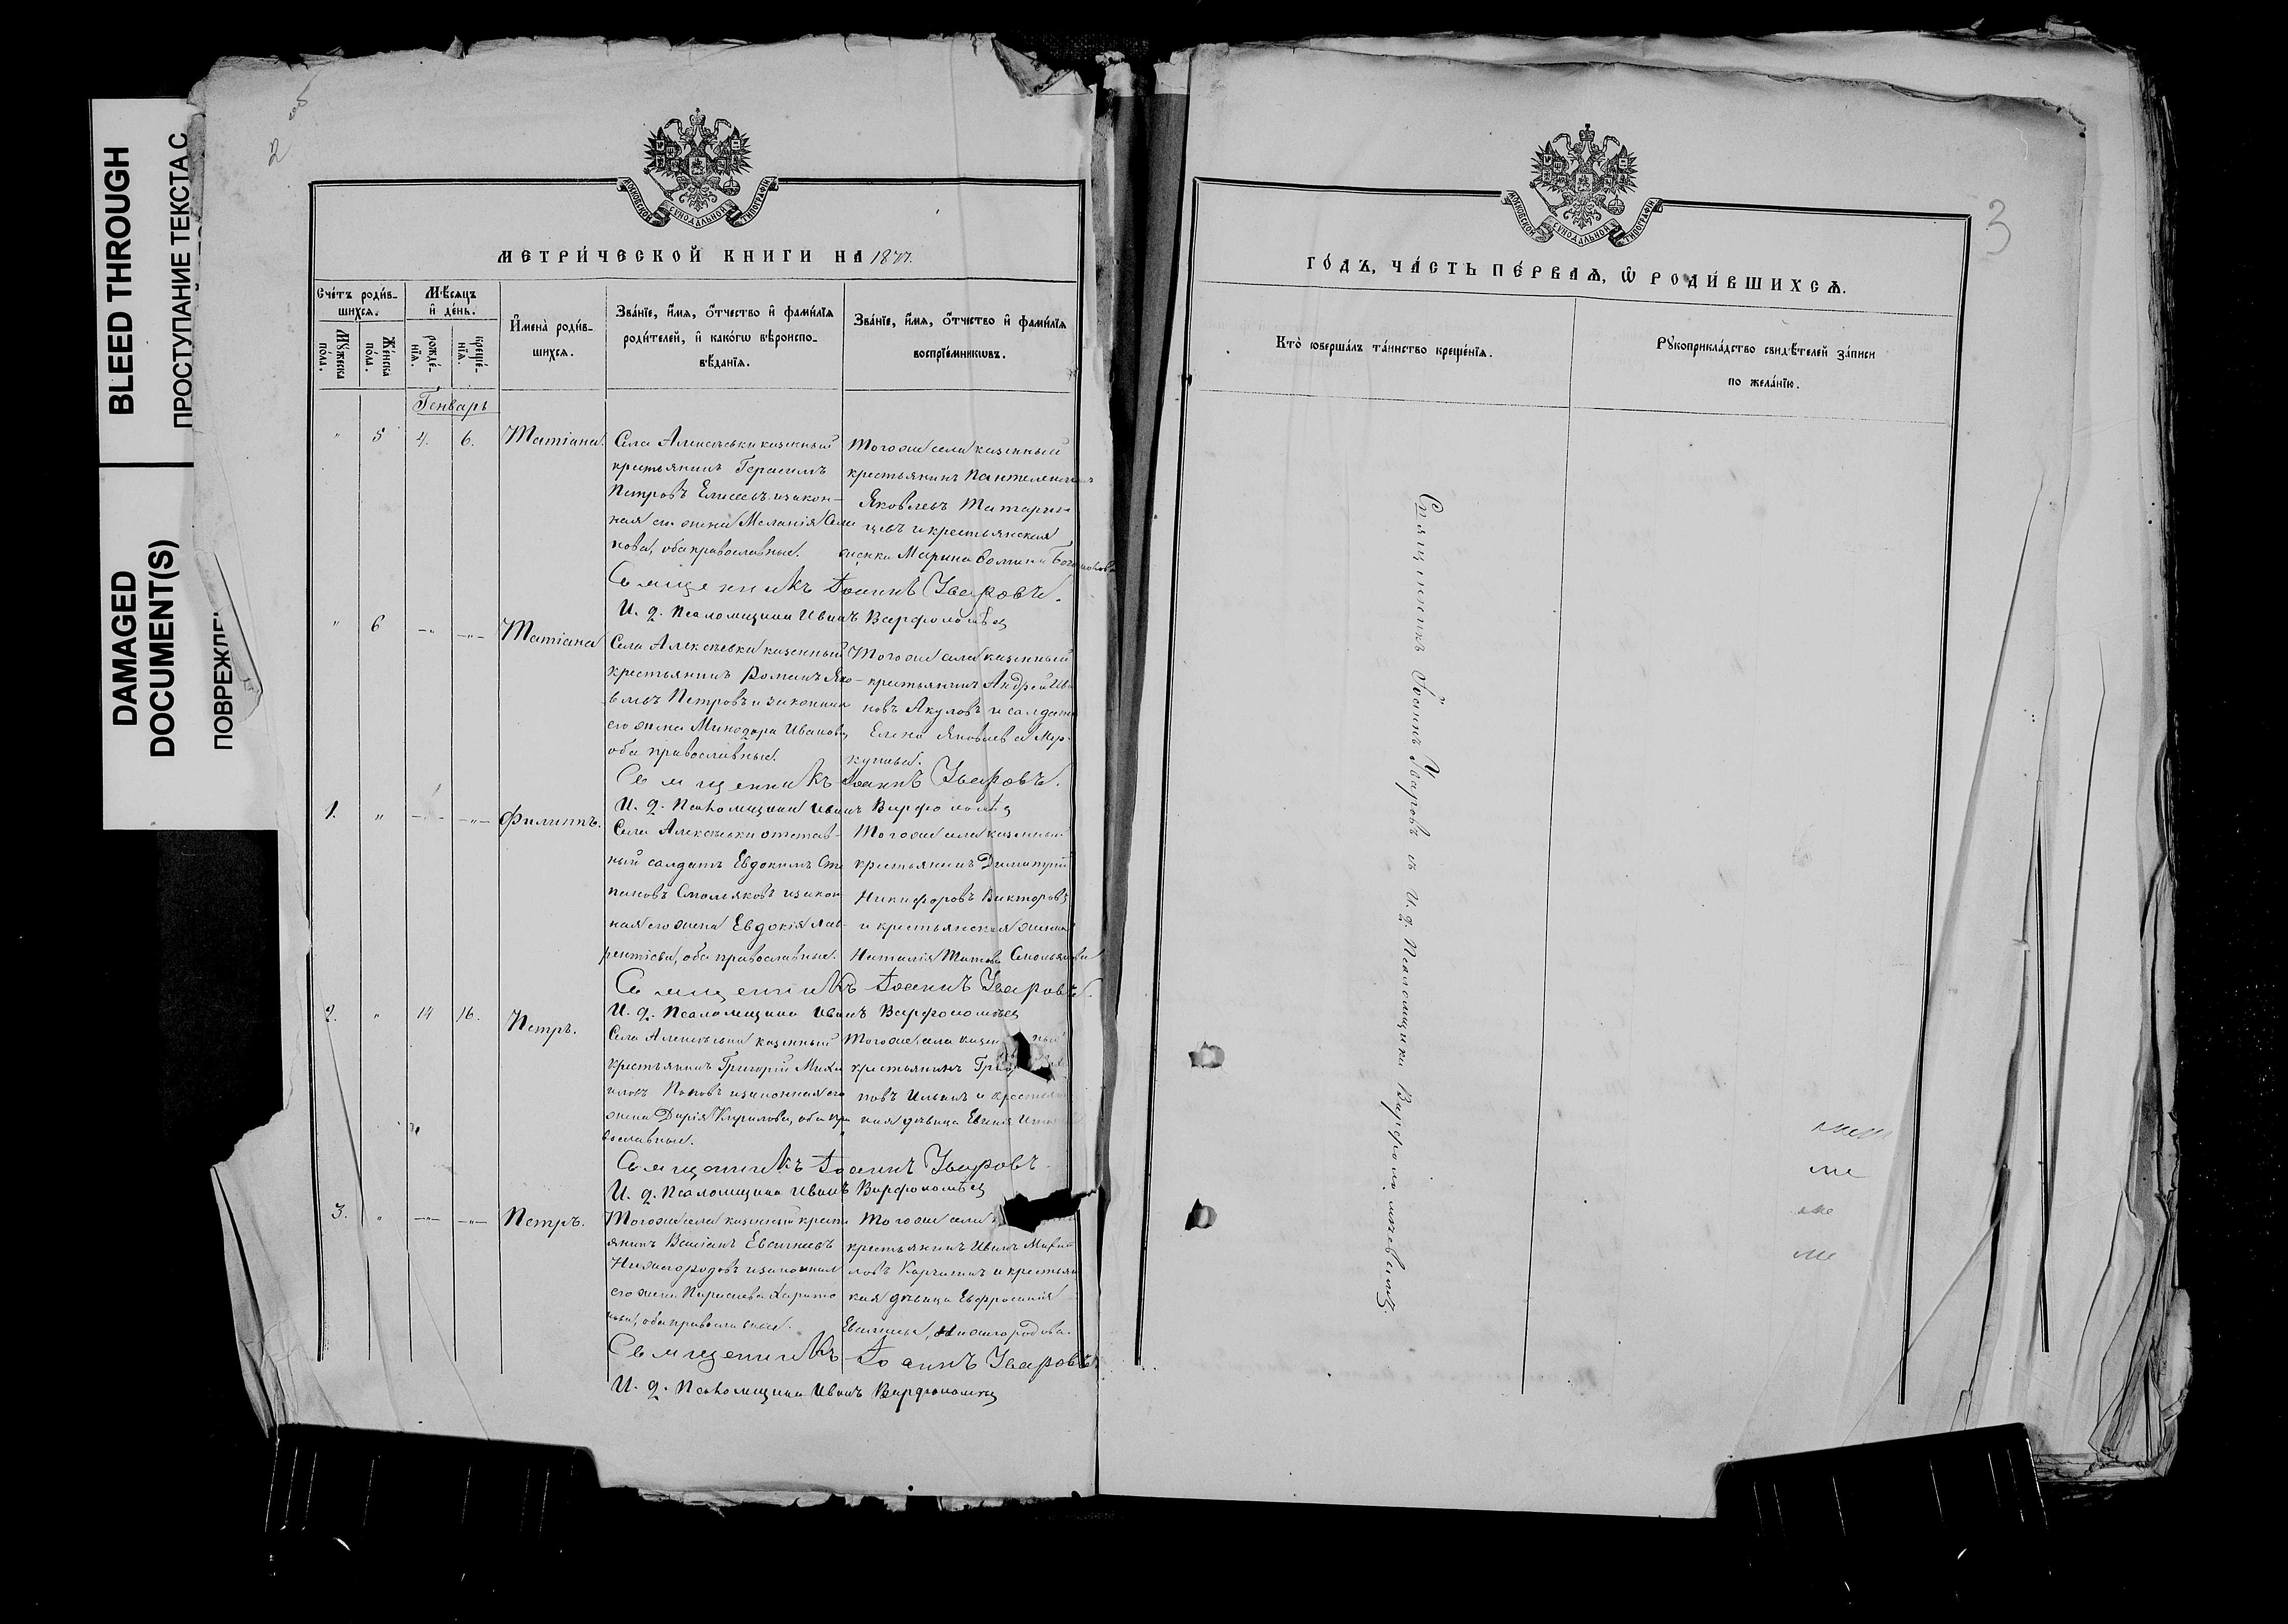 BLEED THROUGH
ПРОСТУПАНИЕ ТЕКСТА С
DAMAGED
DOCUMENT(S)
ПОВРЕЖДЕ
2
МОСКОВСКОЙ СѴНОДАЛЬНОЙ ТИПОГРАФІИ
МЕТРИ́ЧЕСКОЙ КНИГИ НА 1877.
Сче́тъ роди́в-
шихсѧ.
Мѣ́сѧцъ
и҆ де́нь.
Мꙋ́жеска
по́ла.
Же́нска
по́ла.
рожде́-
нїѧ.
креще́-
нїѧ.
И҆мена̀ роди́в-
шихсѧ.
Зва́нїе, и҆́мѧ, ѻ҆́тчество и҆ фами́лїѧ
роди́телей, и҆ како́гѡ вѣроиспо-
вѣ́данїѧ.
Зва́нїе, и҆́мѧ, ѻ҆́тчество и҆ фами́лїѧ
воспрїе́мникѡвъ.
Генварь
" 5 4. 6. Татіана.
Села Алексѣевки казенный
крестьянинъ Герасимъ
Петровъ Елисеевъ и закон-
ная его жена Меланія Семе
нова, оба православные.
Того же села казенный
крестьянинъ Пантелеимонъ
Яковлевъ Татарин-
цевъ и крестьянская
женка Марина Ѳомина
Священникъ Іоаннъ Уваровъ.
И. д. Псаломщика Иванъ Варфоломѣевъ
" 6 -"- -"- Татіана
Села Алексѣевки казенный
крестьянинъ Романъ Яко-
влевъ Петровъ и законная
его жена Минодора Иванова,
оба православные.
Того же села казенный
крестьянинъ Андрей Ива
новъ Акуловъ и солдатка
Елена Яковлева Мер-
кулова.
Священникъ Іоаннъ Уваровъ.
И. д. Псаломщика Иванъ Варфоломѣевъ
1. " -"- -"- Филиппъ.
Села Алексѣевки отстав-
ный солдатъ Евдокимъ Сте
пановъ Смольяковъ и закон
ная его жена Евдокія Лав-
рентіева, оба православные.
Того же села казенный
крестьянинъ Димитрій
Никифоровъ Викторовъ
и крестьянская женка
Наталія Титова Смольякова
Священникъ Іоаннъ Уваровъ.
И. д. Псаломщика Иванъ Варфоломѣевъ
2. " 14 16. Петръ.
Села Алексѣевки казенный
крестьянинъ Григорій Миха
иловъ Поповъ и законная его
жена Дарія Кирилова, оба пра
вославные.
Того же села казенный
крестьянинъ
новъ Ильинъ и крестьян
ская дѣвица
Священникъ Іоаннъ Уваровъ
И. д. Псаломщика Иванъ Варфоломѣевъ
3. " -"- -"- Петръ.
Того же села казенный кресть
янинъ
Нижегородовъ и законная
его жена Параскева Харито
нова, оба православные.
Того же села
крестьянинъ Иванъ Михай
ловъ и крестьян
ская дѣвица Евфросинія
Нижегородова.
Священникъ Іоаннъ Уваровъ
И. д. Псаломщика Иванъ Варфоломѣевъ
3
МОСКОВСКОЙ СѴНОДАЛЬНОЙ ТИПОГРАФІИ
ГО́ДЪ, ЧА́СТЬ ПЕ́РВАѦ, Ѽ РОДИ́ВШИХСѦ.
Кто̀ соверша́лъ та́инство креще́нїѧ.
Рꙋкоприкла́дство свидѣ́телей за́писи
по жела́нїю.
Священникъ Іоаннъ Уваровъ съ И. д. Псаломщика Варфоломѣевымъ.